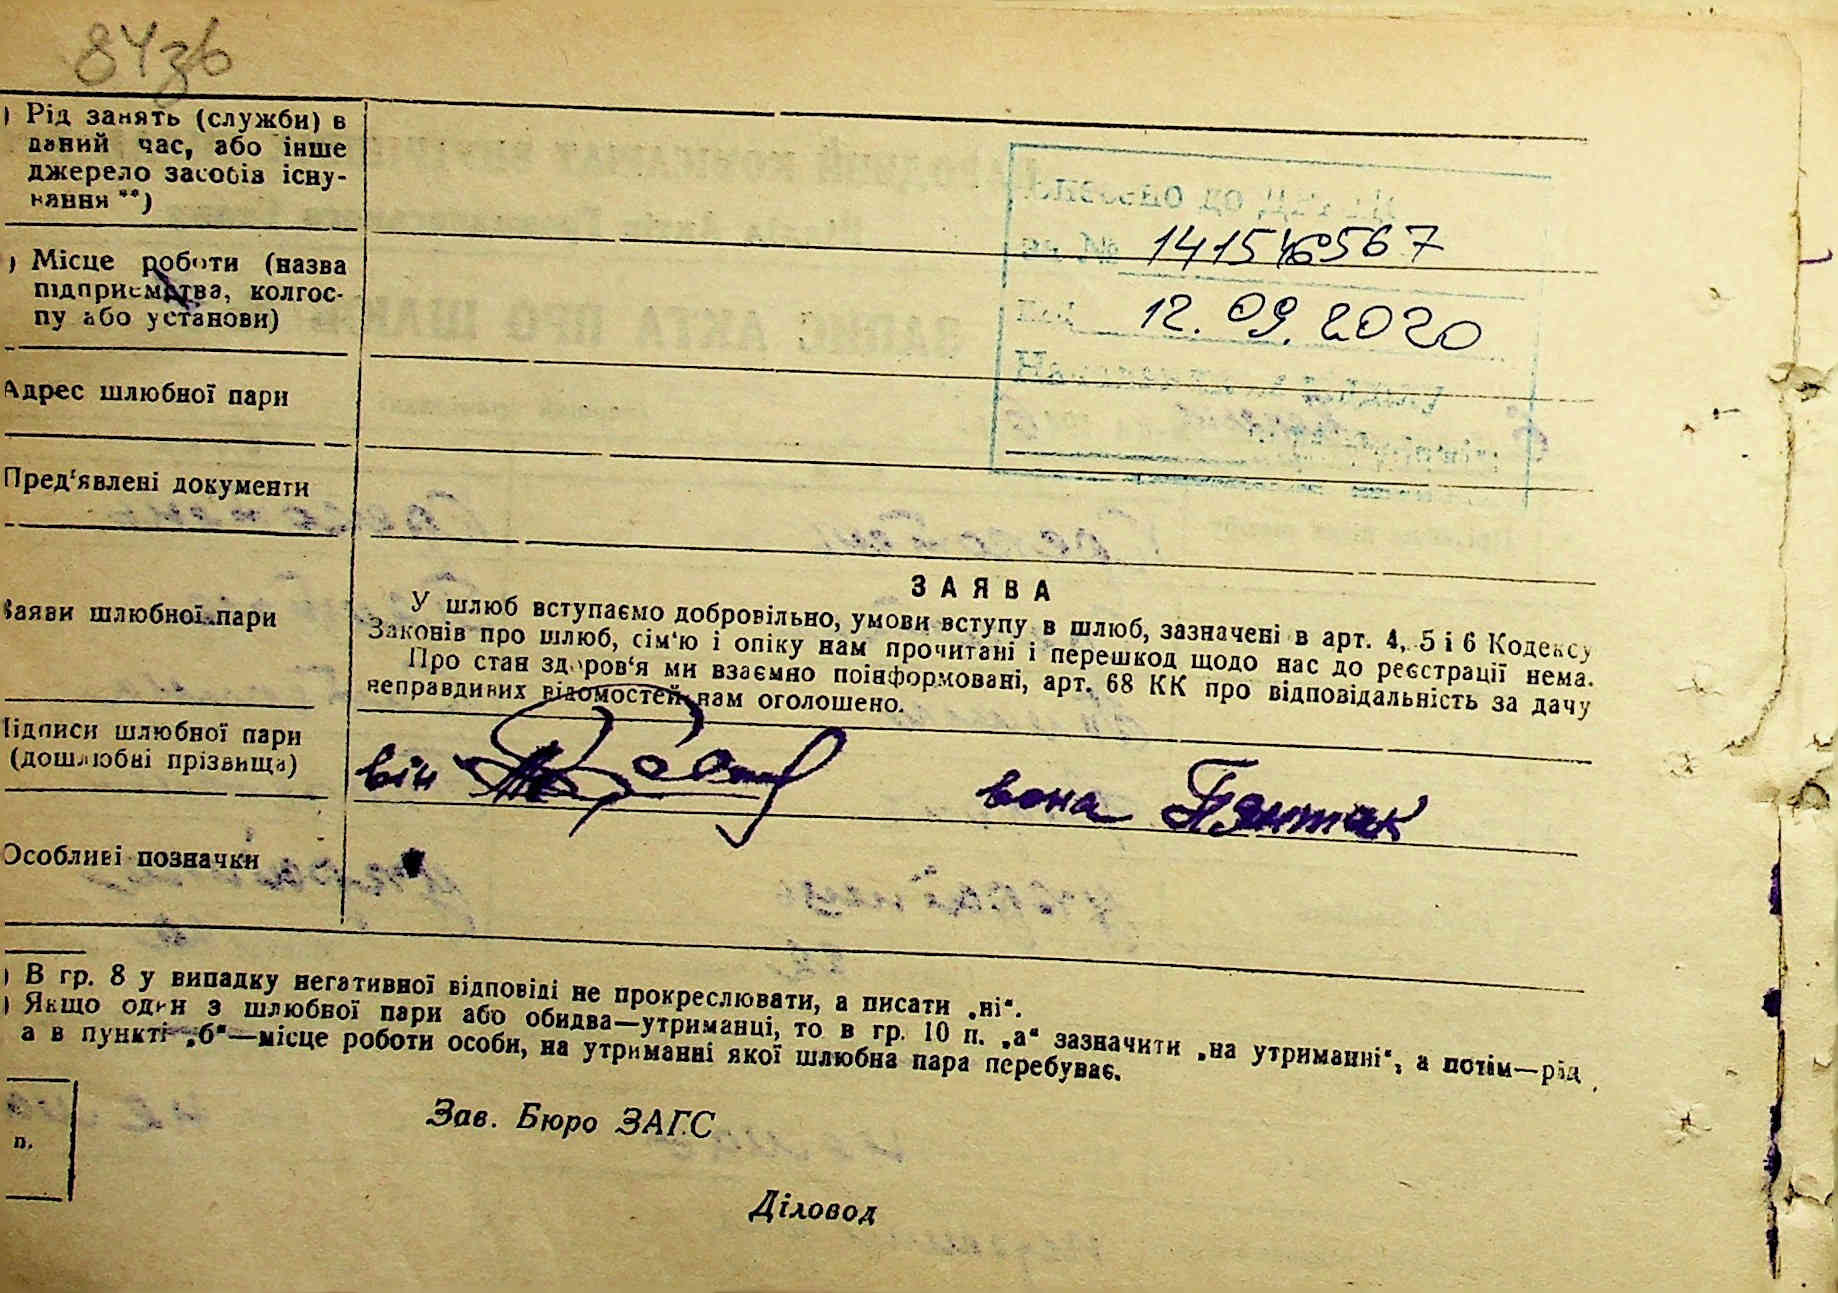 84зв
) Рід занять (служби) в
даний час, або інше
джерело засобів існу-
вання **)
) Місце роботи (назва
підприємства, колгос-
пу або установи)
Адрес шлюбної пари
Пред‘явлені документи
Заяви шлюбної пари
ЗАЯВА
У шлюб вступаємо добровільно, умови вступу в шлюб, зазначені в арт. 4, 5 і 6 Кодексу
Законів про шлюб, сім‘ю і опіку нам прочитані і перешкод щодо нас до реєстрації нема.
Про стан здоров‘я ми взаємно поінформовані, арт. 68 КК про відповідальність за дачу
неправдивих відомостей нам оголошено.
Підписи шлюбної пари
(дошлюбні прізвища)
він
вона
Особливі позначки
до
за № 1415
12.09.2020
) В гр. 8 у випадку негативної відповіді не прокреслювати, а писати „ні“.
) Якщо один з шлюбної пари або обидва—утриманці, то в гр. 10 п. „а“ зазначити „на утриманні“, а потім—рід
а в пункті „б“—місце роботи особи, на утриманні якої шлюбна пара перебуває.
п.
Зав. Бюро ЗАГС
Діловод